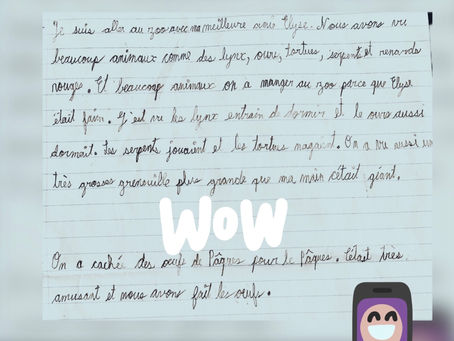 Je suis aller au zoo avec ma meilleure amie Elyse. Nous avons vu
beaucoup animaux comme des lynx, ours, tortues, serpent et renards
rouge. Et beaucoup animaux on a manger au zoo parce que Elyse
était faim. J'est vu les lynx entrain de dormir et le ours aussi
dormait. Les serpents jouaient et les tortus nagaient. On a vu aussi un
très grosses grenouille plus grande que ma main c'était géant.
WOW
On a cachée des oeufs de Pâques pour le Pâques. C'était très
amusant et nous avons fait les oeufs.